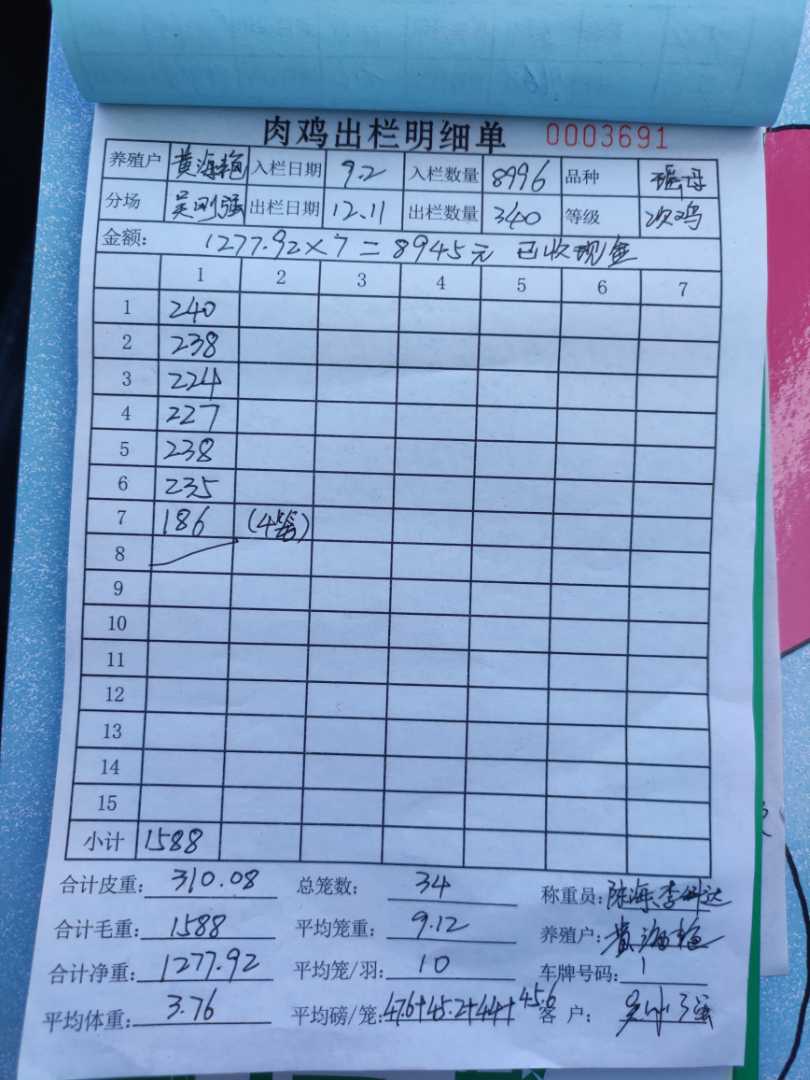 肉鸡出栏明细单 0003691
养殖户 黄海梅 入栏日期 9.2 入栏数量 8996 品种
分场 吴刚强 出栏日期 12.11 出栏数量 340 等级 次鸡
金额: 1277.92×7=8945元 已收现金
1 2 3 4 5 6 7
1 240
2 238
3 224
4 227
5 238
6 235
7 186 (4笼)
8
9
10
11
12
13
14
15
小计 1588
合计皮重: 310.08 总笼数: 34 称重员: 陈海李
合计毛重: 1588 平均笼重: 9.12 养殖户: 黄海梅
合计净重: 1277.92 平均笼/羽: 10 车牌号码:
平均体重: 3.76 平均磅/笼: 47.6+45.2+44+45.6 客户: